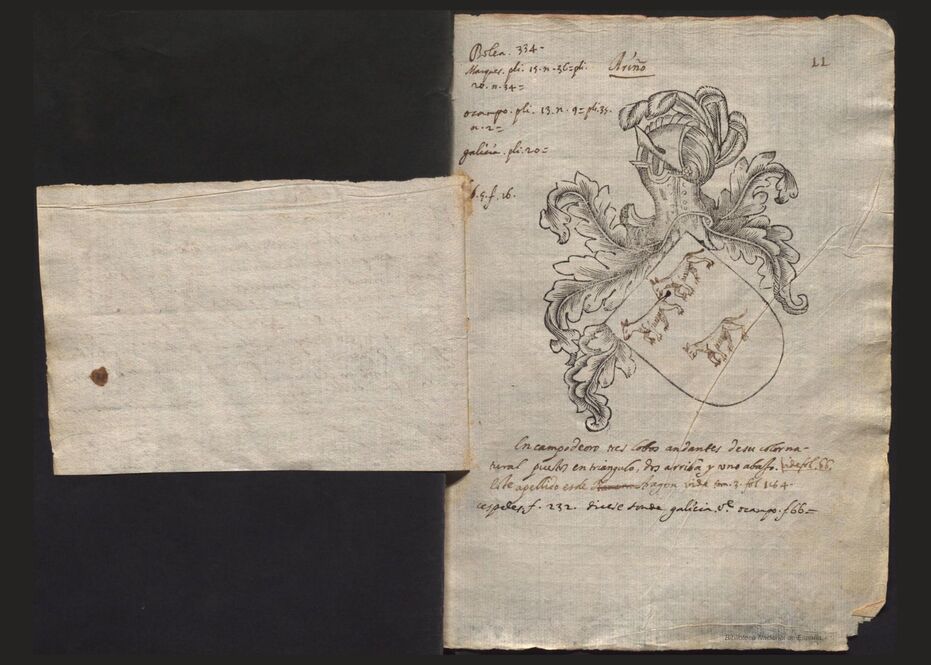 Bolea. 334-
Marques. pli. 15. n. 36= pli.
20. n. 34=
Ariño
11
ocampo. pli. 13. n. 9= pli. 35.
n. 2=
galicia. pli. 20=
5. f. 16.
En campo de oro tres lobos andantes de su color na-
tural puestos en triangulo, dos arriba y uno abajo. vide fol. 66.
este apellido es de Aragon vide tom. 3. fol 164.
cespedes f. 232. dice donde galicia. ocampo. f 66=
Biblioteca Nacional de España